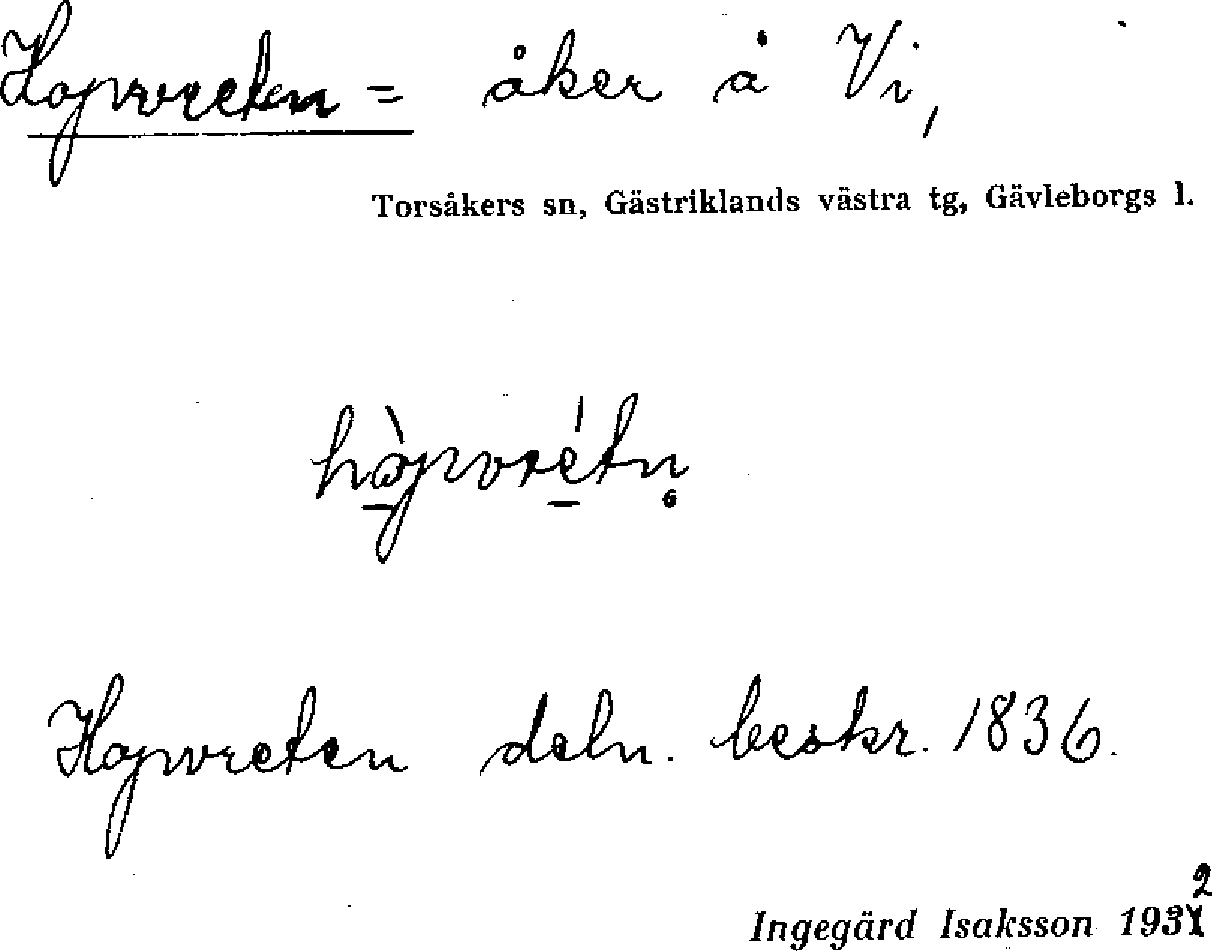 Hopvreten = åker å Vi,
Torsåkers sn, Gästriklands västra tg, Gävleborgs l.
hòpvrétn̥
Hopvreten deln. beskr. 1836.
Ingegärd Isaksson 1932